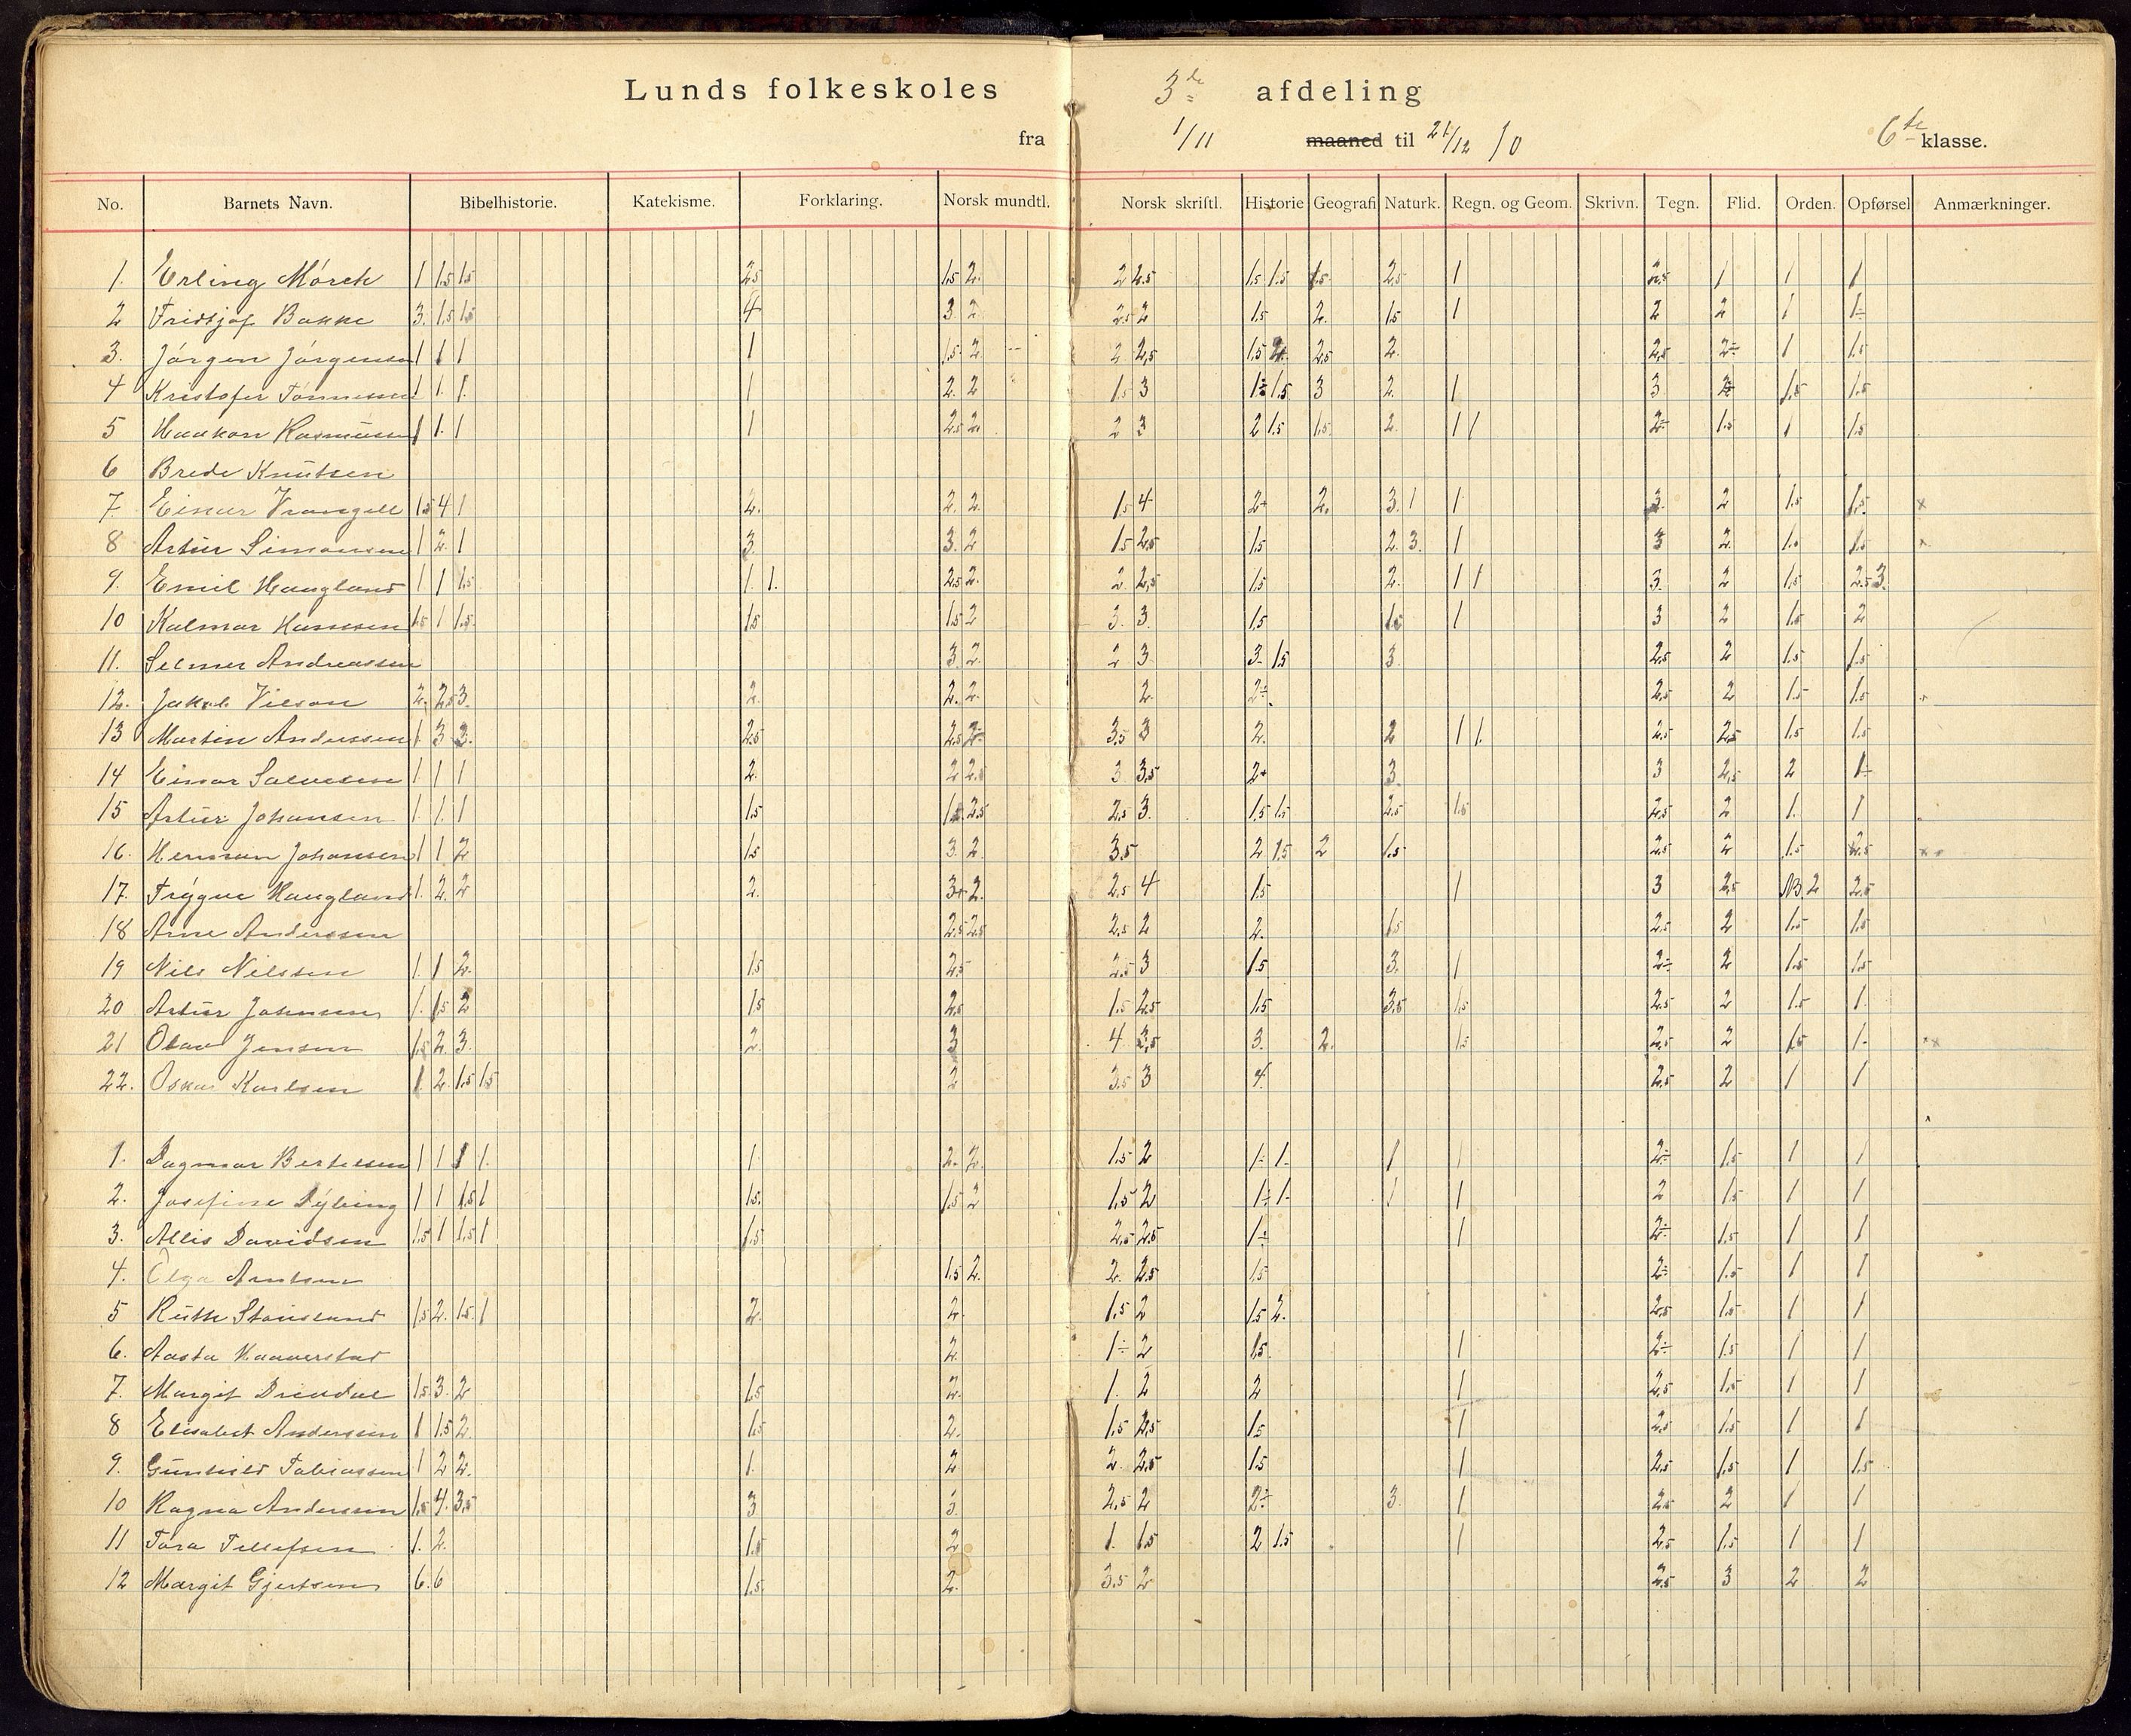 Lunds folkeskoles 3de afdeling
fra 1/11 maaned til 21/12 10 6te klasse.
No. Barnets Navn. Bibelhistorie. Katekisme. Forklaring. Norsk mundtl. Norsk skriftl. Historie Geografi Naturk. Regn. og Geom. Skrivn. Tegn. Flid. Orden. Opførsel Anmærkninger.
1. Erling Mórch 1 1.5 1.5 2.5 1.5 2. 2 2.5 1.5 1.5 1.5 2.5 1 2.5 1 1 1
2 Fridtjof Bakke 3. 1.5 1.5 4 3 2 2.5 2 1.5 2. 1.5 1 2 2 1 1÷
3. Jórgen Jórgensen 1 1 1 1 1.5 2. 2 2.5 1.5 2. 2.5 2. 2.5 2÷ 1 1.5
4 Kristofer Tónnessen 1 1. 1. 1 2. 2 1.5 3 1÷ 1.5 3 2. 1 3 2÷ 1.5 1.5
5 Haakon Rasmussen 1 1. 1 1 2.5 2. 2 3 2 1.5 1.5 2. 1 1 2÷ 1.5 1 1.5
6 Brede Knutsen
7. Einar Vrangell 1.5 4 1 2. 2. 2. 1.5 4 2+ 2. 3. 1 1 3. 2 1.5 1.5 x
8 Artur Simonsen 1 2. 1 3. 3. 2 1.5 2.5 1.5 2. 3. 1 3 2. 1.5 1.5 x
9. Emil Haugland 1 1 1.5 1. 1. 2.5 2. 2. 2.5 1.5 2. 1 1 3. 2 1.5 2.5 3.
10 Kalmar Hansen 1.5 1 1.5 1.5 1.5 2 3. 3. 1.5 1.5 1 3 2 1.5 2
11. Selmer Andreassen 3. 2. 2 3 3. 1.5 3. 2.5 2 1.5 1.5
12. Jakob Vilson 2. 2.5 3. 2. 2. 2. 2. 2÷ 2.5 2 1.5 1.5
13 Martin Anderssen 1 3 3. 2.5 2.5 2÷ 3.5 3 2. 2 1 1. 2.5 2.5 1.5 1.5
14 Einar Salvesen 1. 1 1 2. 2 2.5 3 3.5 2+ 3. 3 2.5 2 1÷
15 Artur Johansen 1. 1. 1 1.5 1.5 2.5 2.5 3. 1.5 1.5 2.5 1.5 2.5 2 1. 1
16. Herman Johansen 1 1 2 1.5 3. 2. 3.5 2 1.5 2 1.5 2.5 2 1.5 2.5 x x
17. Trygve Haugland 1. 2. 2 2. 3÷ 2. 2.5 4 1.5 1 3 2.5 NB 2 2.5
18 Arne Anderssen 2.5 2.5 2.5 2 2. 1.5 2.5 2 1.5 1.5
19 Nils Nilssen 1. 1 2. 1.5 2.5 2.5 3 1.5 3. 1 2÷ 2 1.5 1.5
20 Artur Johnsen 1. 1.5 2 1.5 2.5 1.5 2.5 1.5 3.5 1.5 2.5 2 1.5 1.
21 Olav Jensen 1.5 2. 3. 2. 3 4 3.5 3. 2. 1.5 2.5 2 1.5 1. x x
22. Oskar Karlsen 1. 2. 1.5 1.5 2 3.5 3 4. 2.5 2 1 1
1. Dagmar Bertelsen 1 1 1 1. 1. 2. 2. 1.5 2 1÷ 1. 1 1 2÷ 1.5 1 1
2. Josefine Dybing 1 1 1.5 1 1.5. 1.5 2 1.5 2 1÷ 1. 1 1 2 1.5 1 1
3. Allis Davidsen 1.5 1 1.5 1 1.5 2.5 2.5 1÷ 1 2÷ 1.5 1 1
4. Olga Arntsen 1.5 2. 2. 2.5 1.5 2÷ 1.5 1 1
5 Ruth Stausland 1.5 2. 1.5 1 2. 2. 1.5 2 1.5 2. 2.5 1.5 1 1
6. Aasta Haaverstad 2. 1÷ 2 1.5. 1 2÷ 1.5 1 1
7. Margit Drivdal 1.5 3. 2 1.5 2. 1. 2 2 1 2.5 1.5 1 1
8 Elisabet Anderssen 1 1.5 2. 1.5 2. 1.5 2.5 1.5 1 2.5 1.5 1 1
9. Gunhild Tobiassen 1 2 2. 1. 2 2. 2.5 1.5 1 2.5 1.5 1 1.5
10 Ragna Anderssen 1.5 4. 3.5 3 3. 2.5 2 2÷ 3. 1 2.5 2 1 1
11 Tora Tellefsen 1. 2. 1.5 2 1. 1.5 2 1.5 1 2.5 1.5 1 1
12 Margit Gjertsen 6. 6 1.5. 2. 3.5 2 2.5 3 2 2